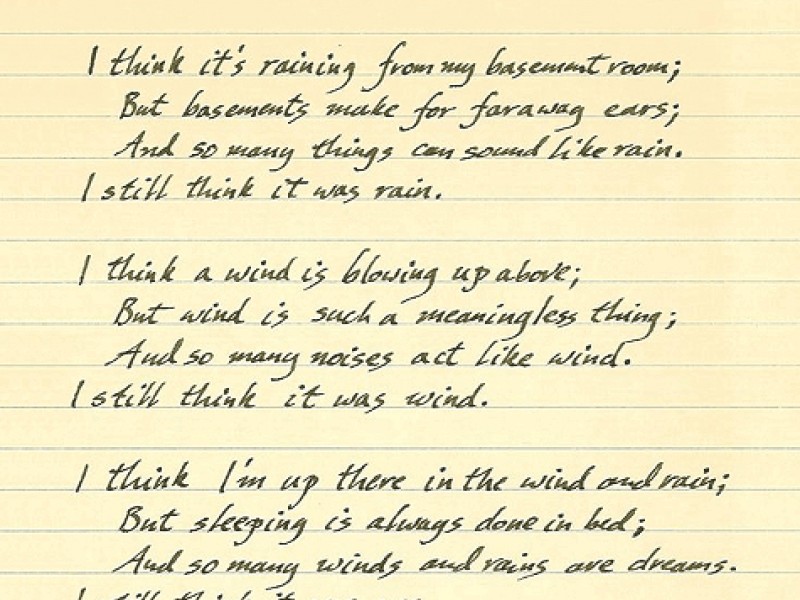 I think it's raining from my basement room;
But basements make for faraway ears;
And so many things can sound like rain.
I still think it was rain.
I think a wind is blowing up above;
But wind is such a meaningless thing;
And so many noises act like wind.
I still think it was wind.
I think I'm up there in the wind and rain;
But sleeping is always done in bed;
And so many winds and rains are dreams.
I still think it